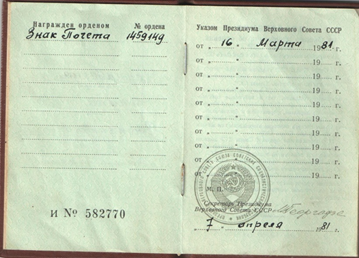 Награжден орденом
№ ордена
Знак Почета
1459149
И № 582770
Указом Президиума Верховного Совета СССР
от „ 16 „ Марта 1981 г.
от „ 19 г.
от „ 19 г.
от „ 19 г.
от „ 19 г.
от „ 19 г.
от „ 19 г.
от „ 19 г.
от „ 19 г.
М. П.
Секретарь Президиума
Верховного Совета СССР
„ 7 „ апреля 1981 г.